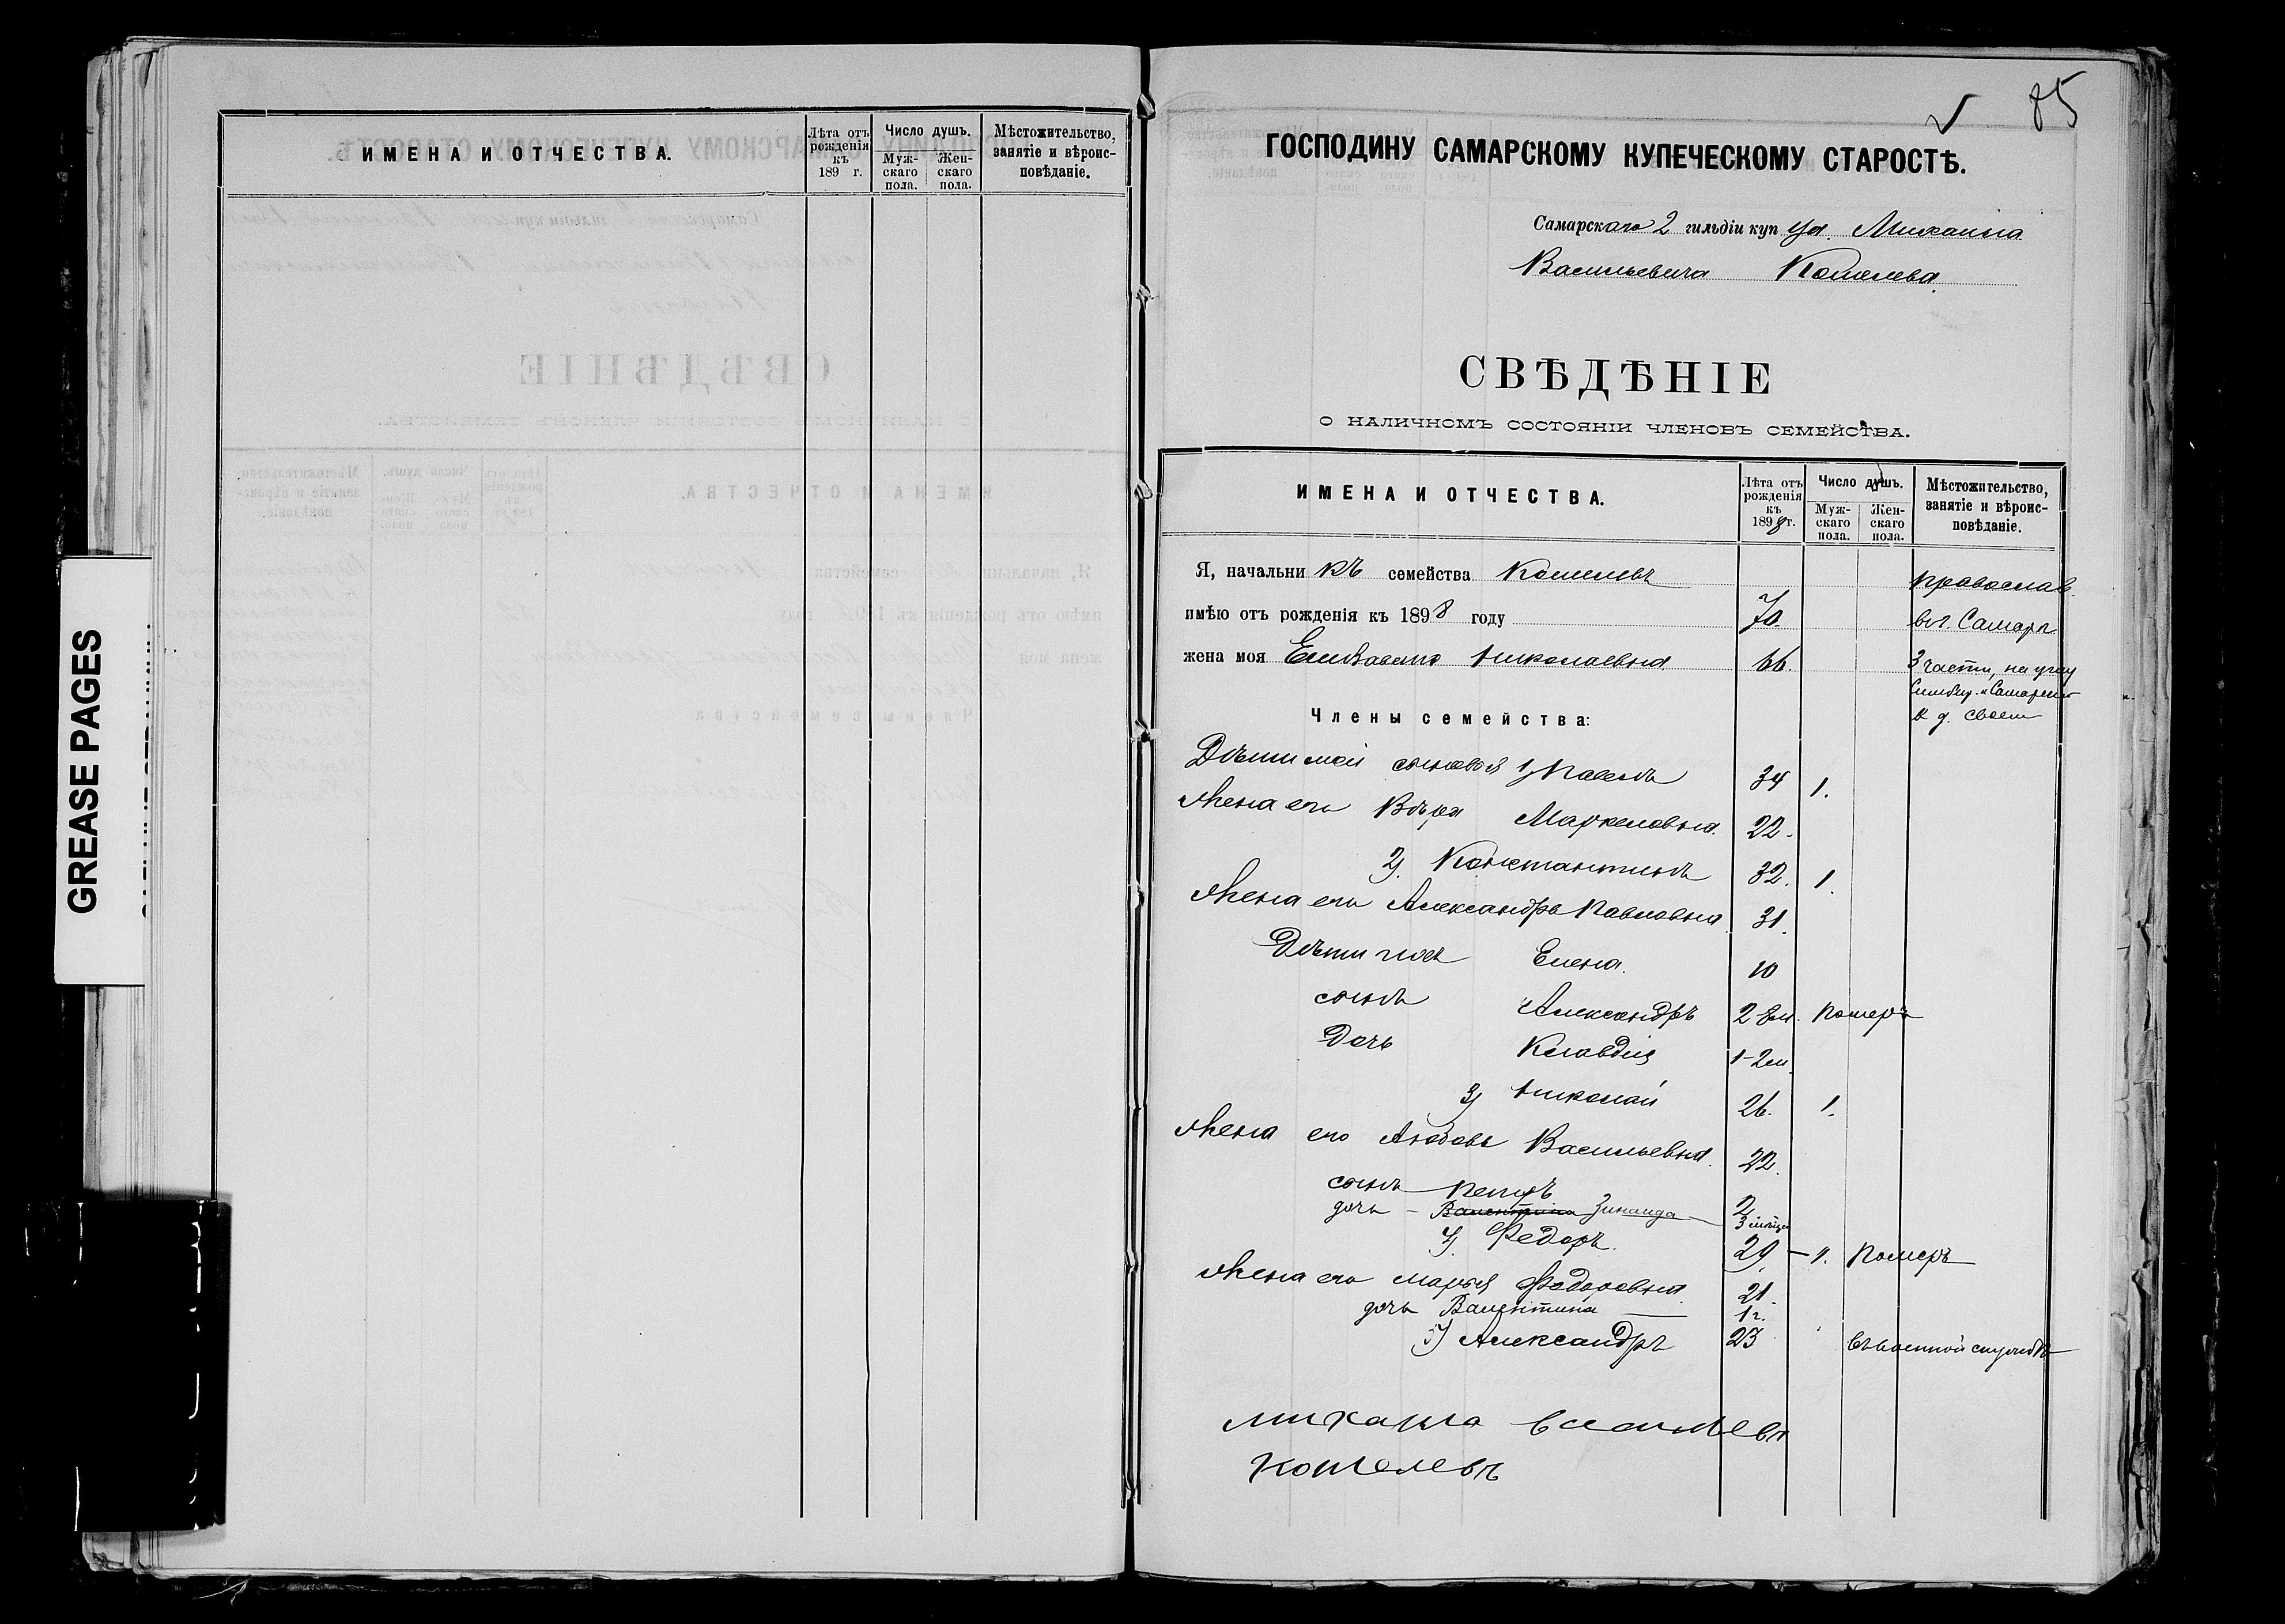 GREASE PAGES
ИМЕНА И ОТЧЕСТВА.
Лѣта отъ рожденія къ 189 г.
Число душъ.
Муж- скаго пола.
Жен- скаго пола.
Мѣстожительство, занятіе и вѣроис- повѣданіе.
85
ГОСПОДИНУ САМАРСКОМУ КУПЕЧЕСКОМУ СТАРОСТѢ.
Самарскаго 2 гильдіи куп ца Михаила
Васильевича Кошелева
СВѢДѢНІЕ
О НАЛИЧНОМЪ СОСТОЯНІИ ЧЛЕНОВЪ СЕМЕЙСТВА.
ИМЕНА И ОТЧЕСТВА.
Лѣта отъ рожденія къ 1898 г.
Число душъ.
Муж- скаго пола.
Жен- скаго пола.
Мѣстожительство, занятіе и вѣроис- повѣданіе.
Я, начальни къ семейства Кошелевъ православ.
имѣю отъ рожденія къ 1898 году 70. в г. Самарѣ
жена моя Елизавета Николаевна 66. 3 части, на углу
Симбир. и Самарской
в д. своем
Члены семейства:
Дѣти мои сыновья 1) Павелъ 34 1.
Жена его Вѣра Маркеловна. 22.
2). Константинъ 32. 1.
Жена его Александра Павловна 31.
Дѣти Елена. 10
сынъ Александръ 2 8 м. Померъ
Дочь Клавдія 1-2 м.
3) Николай 26. 1.
Жена его Любовь Васильевна. 22.
сынъ Петръ 2
дочь - Валентина Зинаида 3 мѣсяц
4). Федоръ. 29 - 1. Померъ
Жена его Марья Федоровна. 21.
дочь Валентина 1 г.
5) Александръ 23 Въ военной службѣ
михаила васильев
кошелевъ